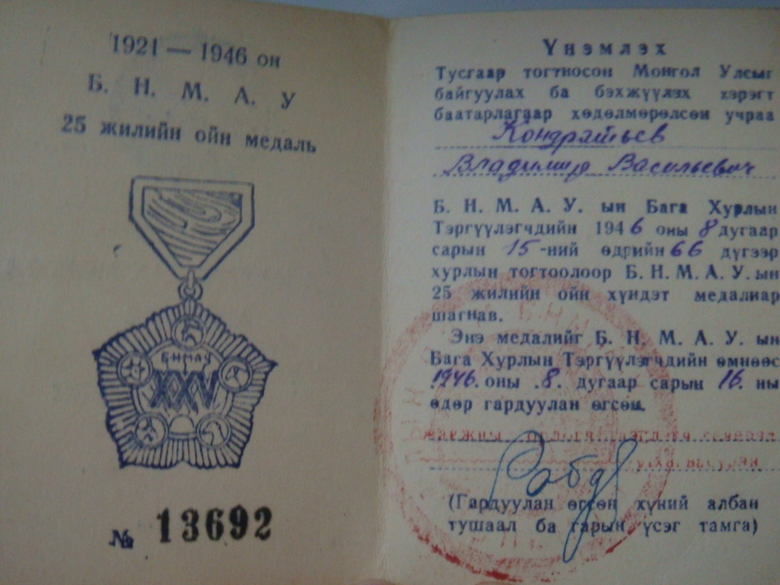 1921 — 1946 он
Б. Н. М. А. У
25 жилийн ойн медаль
БНМАУ
XXV
№ 13692
Үнэмлэх
Тусгаар тогтносон Монгол Улсыг
байгуулах ба бэхжүүлэх хэрэгт
баатарлагаар хөдөлмөрөлсөн учраа
Кондратьев
Владимир Васильевич
Б. Н. М. А. У. ын Бага Хурлын
Тэргүүлэгчдийн 1946 оны 8 дугаар
сарын 15-ний өдрийн 66 дүгээр
хурлын тогтоолоор Б. Н. М. А. У. ын
25 жилийн ойн хүндэт медалиар
шагнав.
Энэ медалийг Б. Н. М. А. У. ын
Бага Хурлын Тэргүүлэгчдийн өмнөөс
1946. оны 8. дугаар сарын 16. ны
өдөр гардуулан өгсөн.
(Гардуулан өгсөн хүний албан
тушаал ба гарын үсэг тамга)